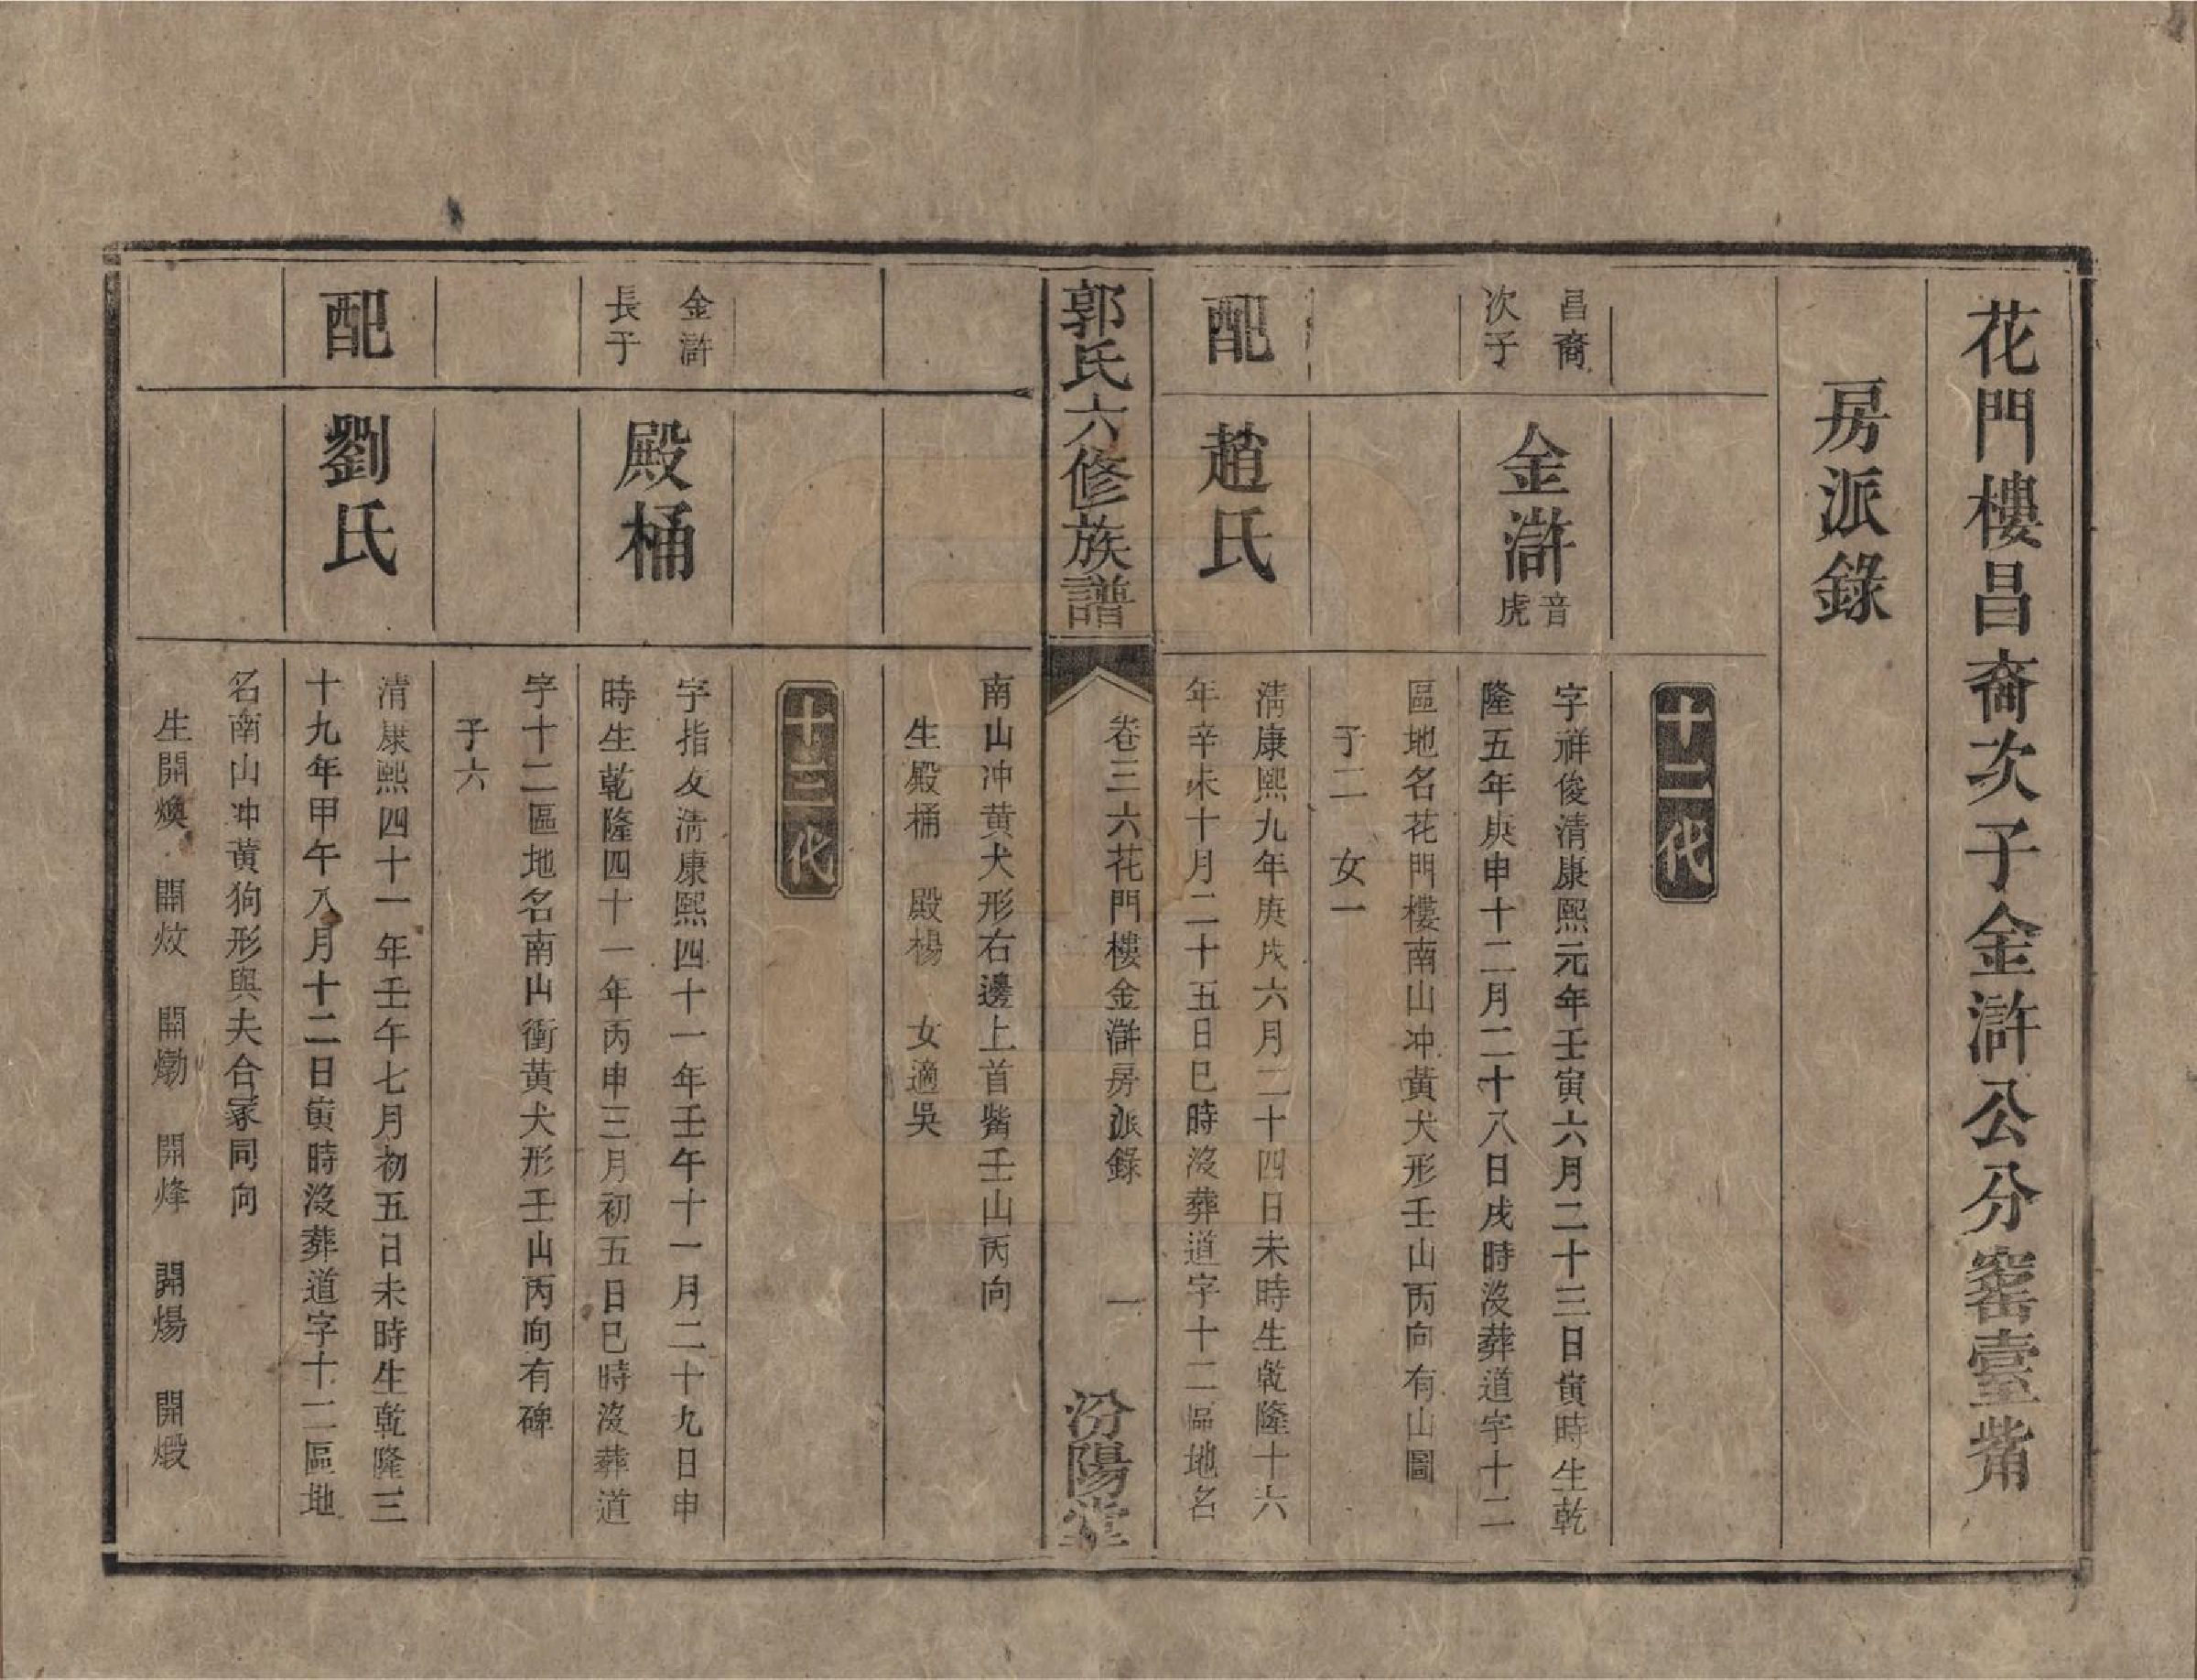 花門樓昌裔次子金滸公分窰臺觜
房派錄
十二代
昌裔
次子
金滸
音
虎
字祥俊清康熙元年壬寅六月二十三日寅時生乾
隆五年庚申十二月二十八日戌時沒葬道字十二
區地名花門樓南山冲黃犬形壬山丙向有山圖
子二 女一
配
趙氏
清康熙九年庚戌六月二十四日未時生乾隆十六
年辛未十月二十五日巳時沒葬道字十二區地名
郭氏六修族譜
卷三六花門樓金滸房派錄
一
汾陽堂
南山冲黃犬形右邊上首觜壬山丙向
生殿桶 殿楊 女適吳
十三代
金滸
長子
殿桶
字指友清康熙四十一年壬午十一月二十九日申
時生乾隆四十一年丙申三月初五日巳時沒葬道
字十二區地名南山衝黃犬形壬山丙向有碑
子六
配
劉氏
清康熙四十一年壬午七月初五日未時生乾隆三
十九年甲午八月十二日寅時沒葬道字十二區地
名南山冲黃狗形與夫合冢同向
生開煥 開炆 開勷 開烽 開煬 開煅